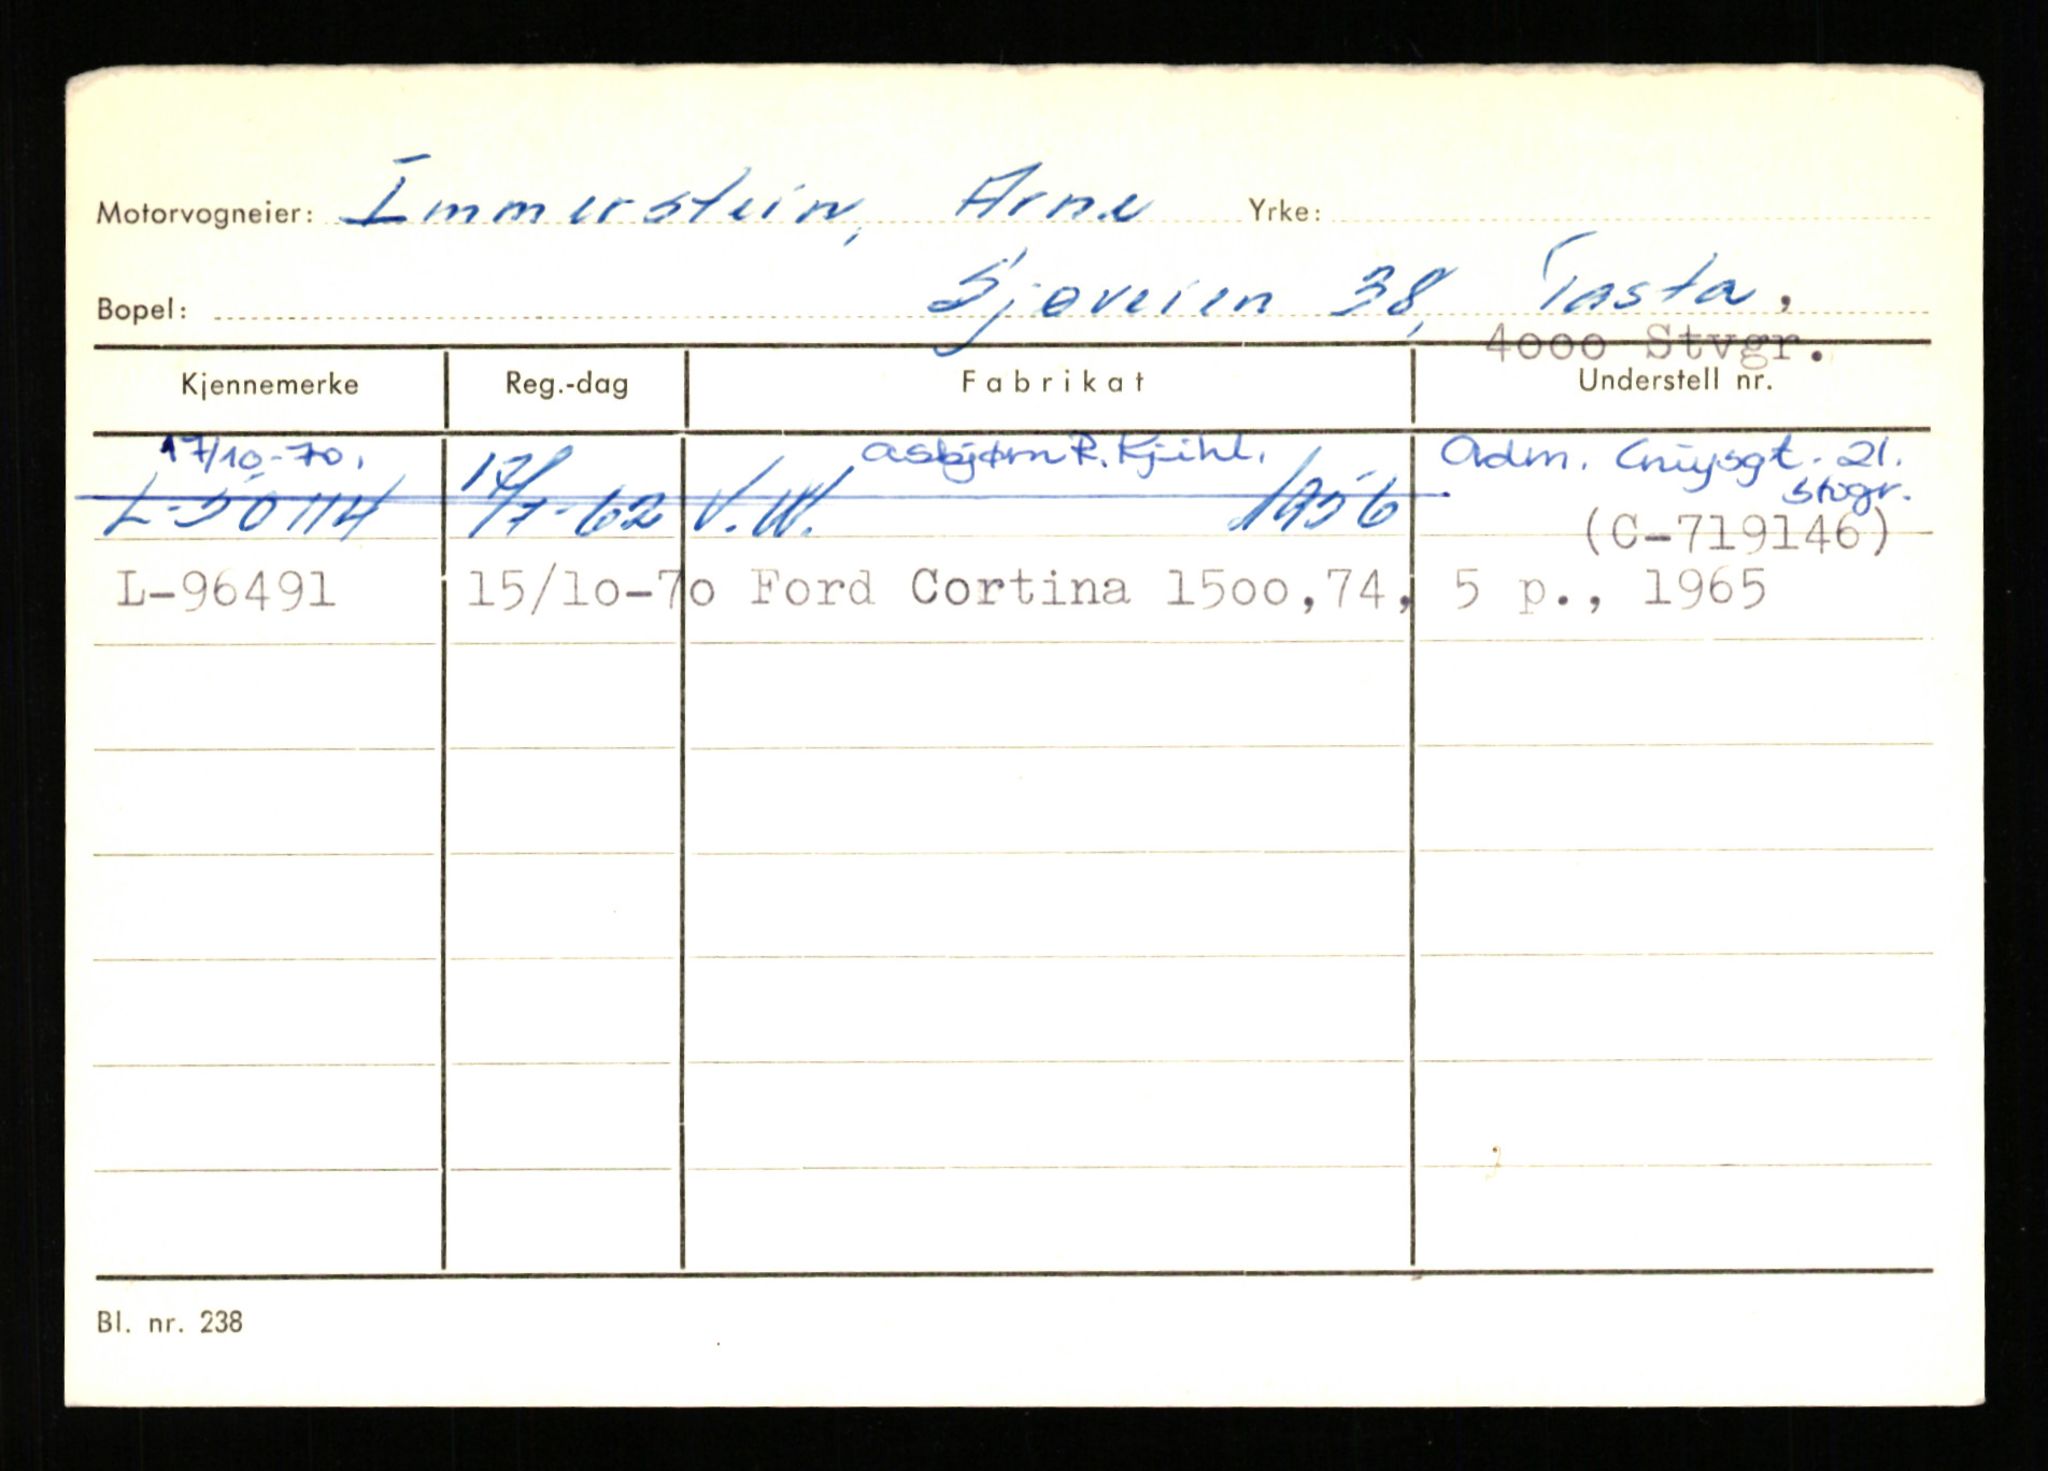 Motorvogneier: Immerstein, Arne Yrke:
Bopel: Sjøveien 38, Tasta,
4000 Stvgr.
Kjennemerke Reg.-dag Fabrikat Understell nr.
17/10-70. Asbjørn R. Kjihl. Adm. Cruysgt. 21.
Stvgr.
L-50114 17/7-62 V.W. 1956
(C-719146)
L-96491 15/10-70 Ford Cortina 1500,74, 5 p., 1965
Bl. nr. 238